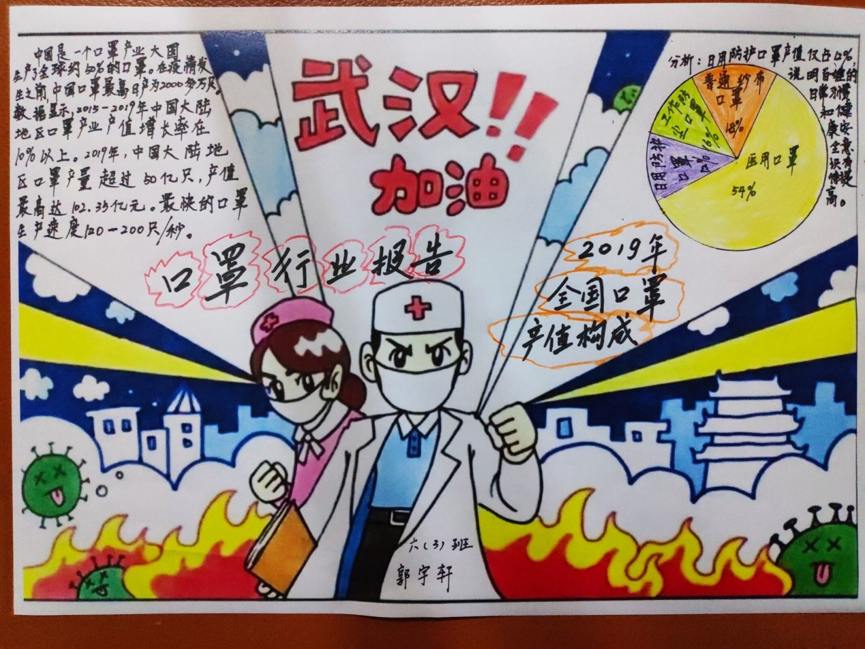 中国是一个口罩产业大国
生产了全球约50%的口罩。在疫情发
生之前,中国口罩最高日产为2000多万只。
数据显示,2015-2019年中国大陆
地区口罩产业产值增长率在
10%以上。2019年,中国大陆地
区口罩产量超过50亿只,产值
最高达102.35亿元。最快的口罩
生产速度120-200只/秒。
武汉!!
加油
口罩行业报告
分析:日用防护口罩产值仅占12%,
说明日常
普通纱布
口罩
18%
工作防
尘口罩
16%
日用防护
口罩
医用口罩
54%
2019年
全国口罩
产值构成
六(3)班
郭宇轩